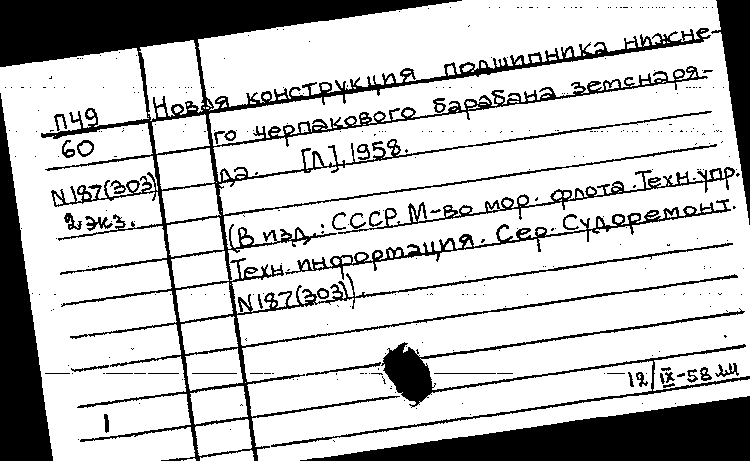 П49
60
N187(303)
2 экз.
Новая конструкция подшипника нижне-
го черпакового барабана земснаря-
да. [Л.], 1958.
(В изд.: СССР. М-во мор. флота. Техн. упр.
Техн. информация. Сер. Судоремонт.
N187(303)).
1
12/IX-58